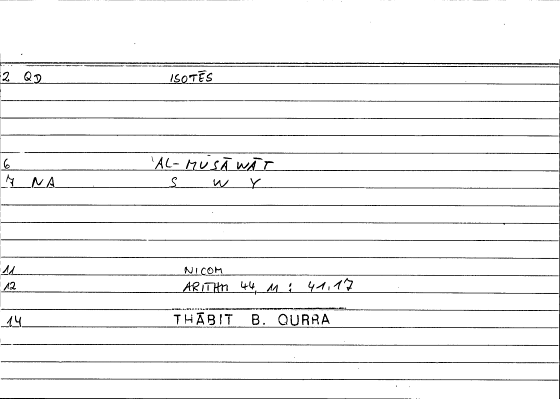 2 QD ISOTĒS
6 'AL-MUSĀWĀT
7 NA S W Y
11 NICOM
12 ARITHM 44, 11 : 41.17
14 THĀBIT B. QURRA